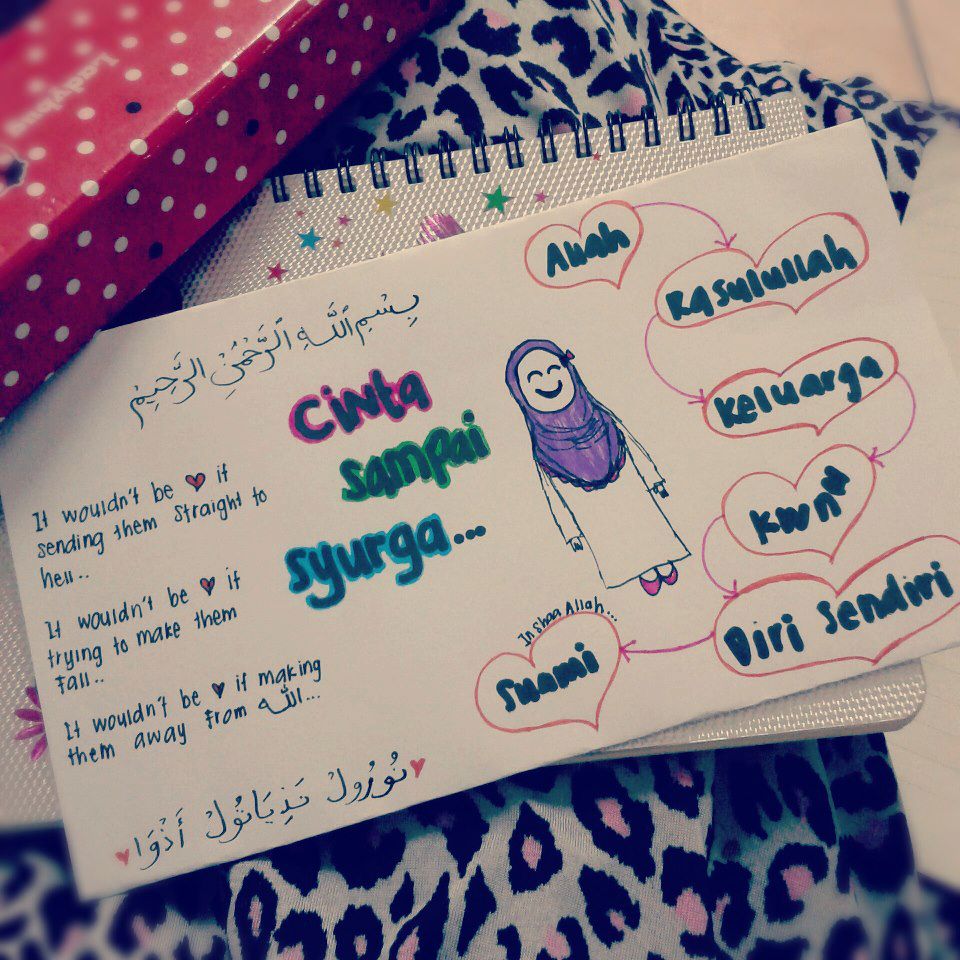 Ladybug
بِسْمِ ٱللَّهِ ٱلرَّحْمَٰنِ ٱلرَّحِيمِ
Cinta
sampai
syurga...
It wouldn't be ♥ if
sending them straight to
hell..
It wouldn't be ♥ if
trying to make them
fall..
It wouldn't be ♥ if making
them away from الله...
نُورُولْ نَذِيَاتُولْ أَذْوَا
Allah
Rasulullah
Keluarga
Kwn"
Diri Sendiri
In shaa Allah...
Suami